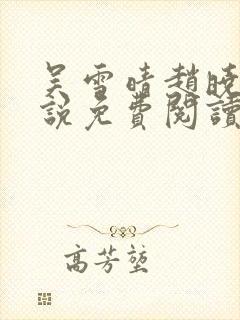 吴雪晴趙晓
說免費閱讀
高芳堃